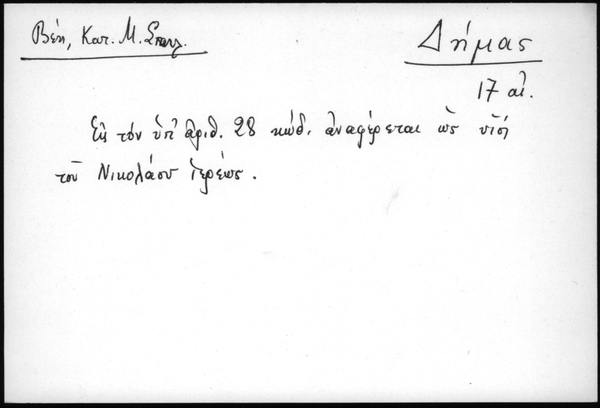 Βέη, Κατ. Μ.
Δήμας
17 αἰ.
Εἰς τόν ὑπ' ἀριθ. 28 κώδ. ἀναφέρεται ὡς υἱός
τοῦ Νικολάου ἱερέως.